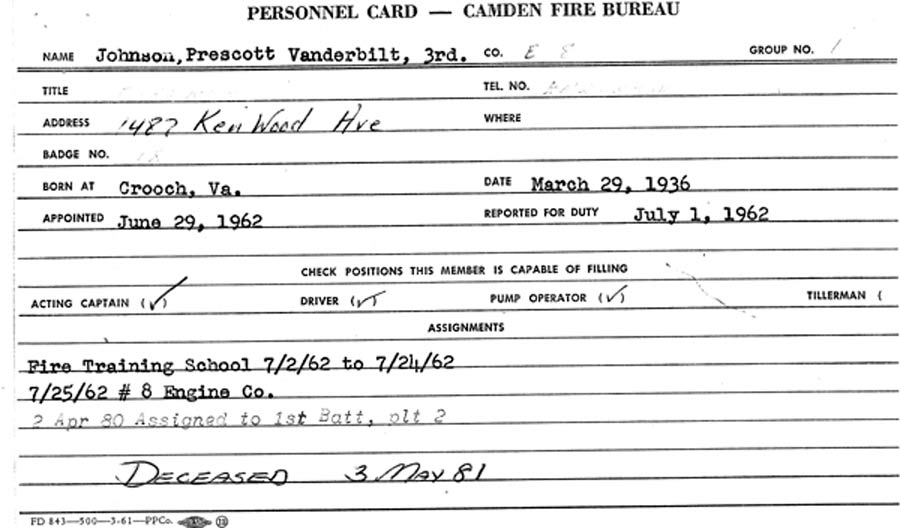 PERSONNEL CARD — CAMDEN FIRE BUREAU
NAME Johnson, Prescott Vanderbilt, 3rd. CO. E 8 GROUP NO. 1
TITLE TEL. NO.
ADDRESS 1487 KenWood Ave WHERE
BADGE NO.
BORN AT Crooch, Va. DATE March 29, 1936
APPOINTED June 29, 1962 REPORTED FOR DUTY July 1, 1962
CHECK POSITIONS THIS MEMBER IS CAPABLE OF FILLING
ACTING CAPTAIN (✓) DRIVER (✓) PUMP OPERATOR (✓) TILLERMAN (
ASSIGNMENTS
Fire Training School 7/2/62 to 7/24/62
7/25/62 # 8 Engine Co.
2 Apr 80 Assigned to 1st Batt, plt 2
DECEASED 3 MAY 81
FD 843—500—3-61—PPCo.